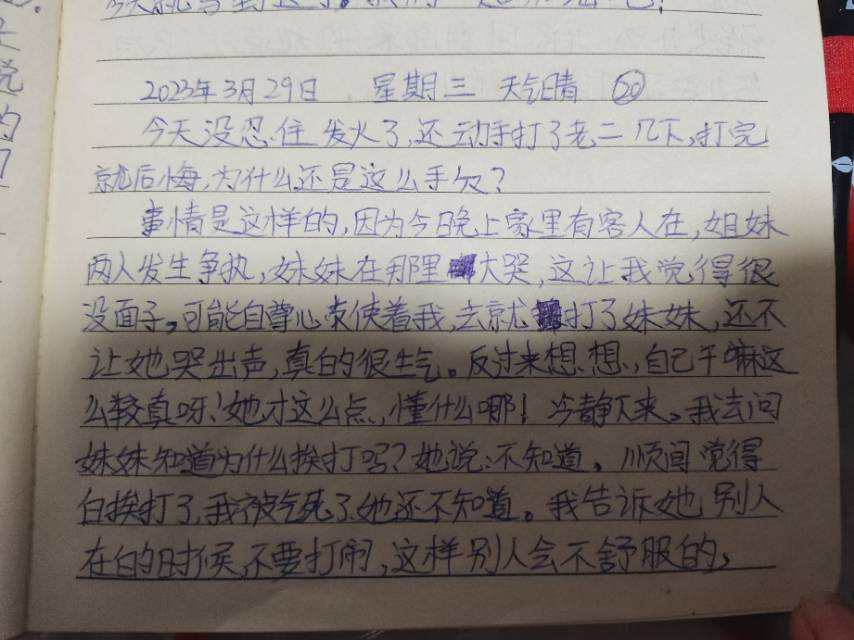 2023年3月29日 星期三 天气晴 20
今天没忍住发火了,还动手打了老二几下,打完
就后悔,为什么还是这么手欠?
事情是这样的,因为今晚上家里有客人在,姐妹
两人发生争执,妹妹在那里大哭,这让我觉得很
没面子。可能自尊心驱使着我,去就打了妹妹,还不
让她哭出声,真的很生气。反过来想想,自己干嘛这
么较真呀!她才这么点,懂什么哪!冷静下来。我去问
妹妹知道为什么挨打吗?她说:不知道。顺间觉得
白挨打了,我被气死了她还不知道。我告诉她别人
在的时候,不要打闹,这样别人会不舒服的,